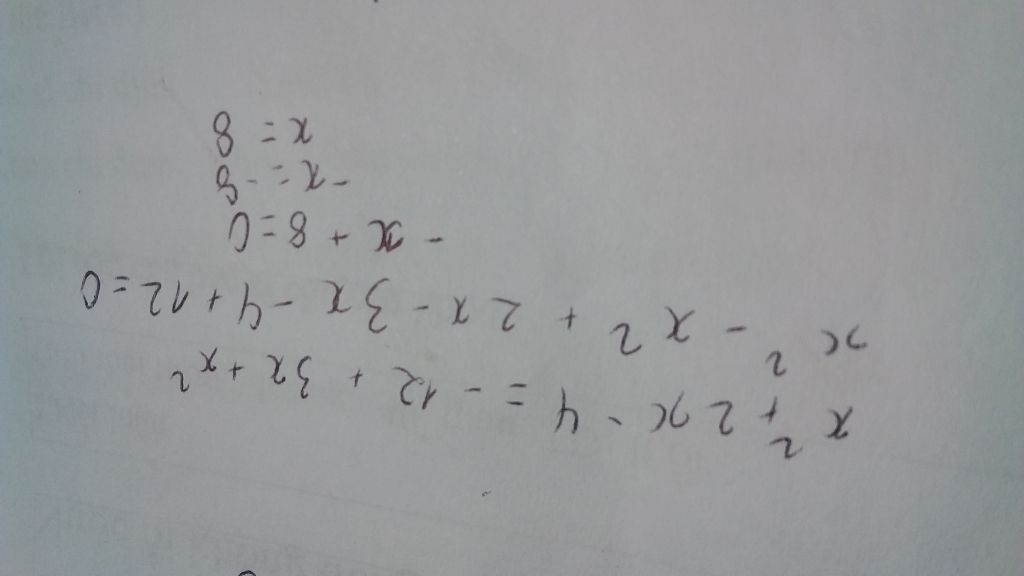 x² + 2x - 4 = - 12 + 3x + x²
x² - x² + 2x - 3x - 4 + 12 = 0
- x + 8 = 0
- x = - 8
x = 8